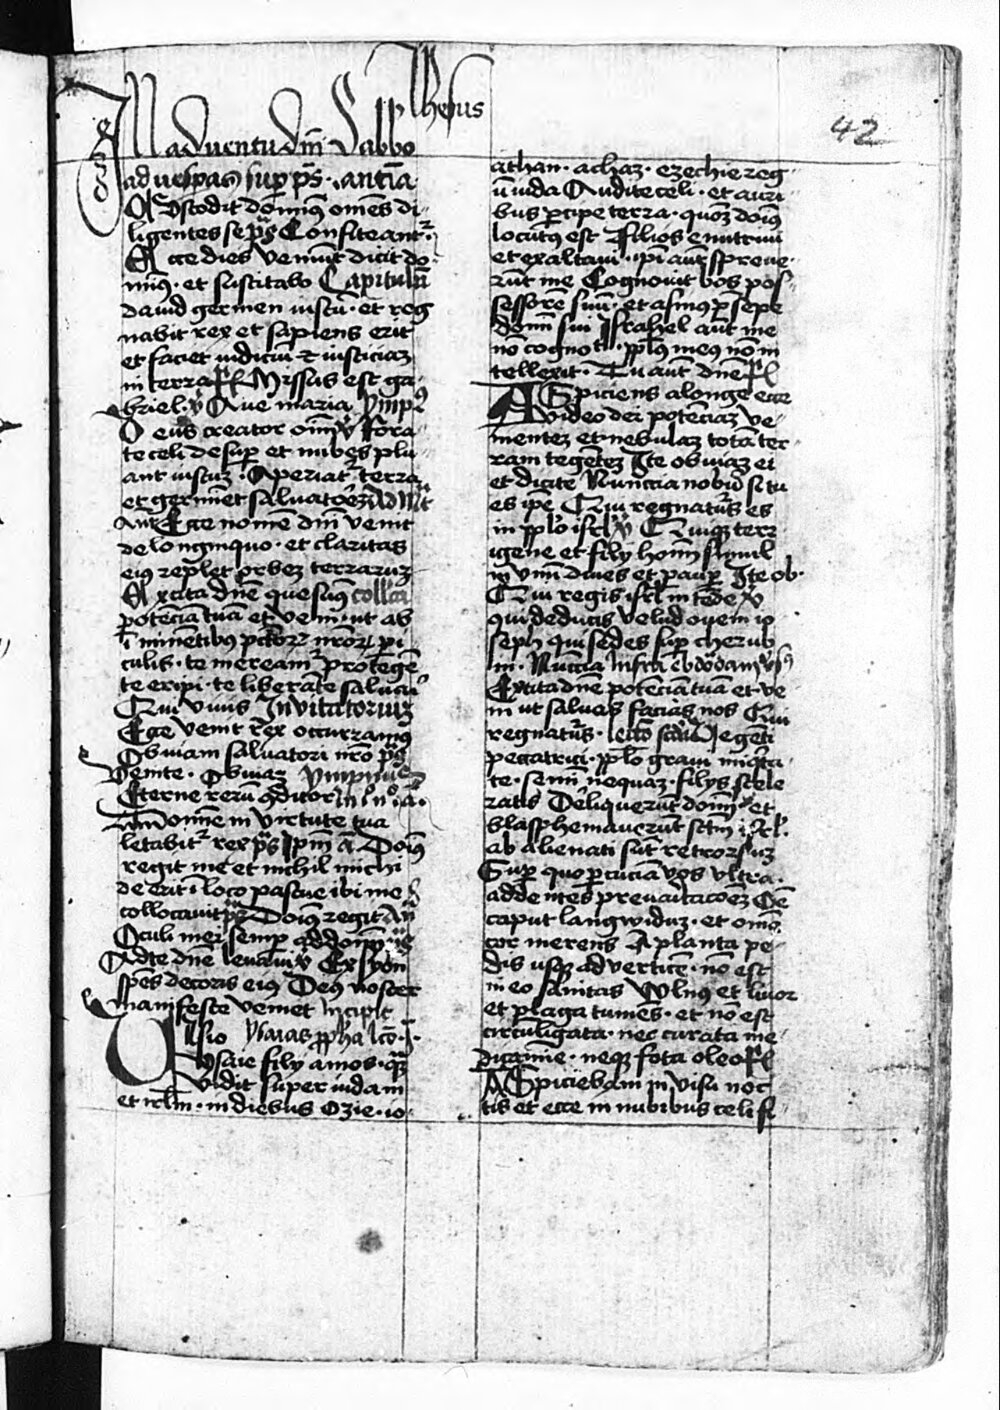 Jhesus
42
In adventu dnī Sabbo
ad vesperas sup ps. antia
Custodit dominus omēs di
ligentes se ps Confiteantr
Ecce dies veniunt dicit do
minus. et suscitabo Capitulū
david germen iustū. et reg
nabit rex et sapiens erit
et faciet iudiciū et iusticiaz
in terra Rs Missus est ga
briel. v Ave maria ympus
Deus creator oīm v Rora
te celi desup et nubes plu
ant iustuz. Aperiatr terra
et germīet salvatorez Ad Mt
Ant Ecce nomē dnī venit
de longinquo. et claritas
eius replet orbez terraruz
Excita dnē quesums collcā
potēciā tuā et veni. ut ab
īminētibus pctor nror pi
culis. te mereamr protegēte
te eripi. te liberāte salvari
Qui vivis Invitatoriuz
Ecce venit rex occurramus
Obviam salvatori nro ps
Venite. Obviaz ympnuz
Eterne rerū conditor in pº nº. ā.
dnē in virtute tua
letabitr rex ps Ipm ā Domūs
regit me et nichil michi
deerit ī loco pascue ibi me
collocavit ps Domūs regit ān
Oculi mei semp ad domū ps
Ad te dnē levavi v Ex syon
spēs decoris eius Deus noster
manifeste veniet Incipit
Visio Ysaias ppha lcō. I.
ysaie fily amos. quā
vidit super iudam
et irlm. in diebus ozie. io
athan. achaz. ezechie reg
ū iuda Audite celi. et auri
bus pcipe terra. quōz domūs
locutus est Filios enutrivi
et exaltavi. ipi aut spreve
rūt me Cognovit bos pos
sessorē suū. et asinus psepe
domī sui Israhel aut me
nō cognovit. pplus meus nō in
tellexit. Tu aut dnē Rs
Aspiciens a longe ecce
video dei potēciaz ve
nientez et nebulaz totā ter
ram tegētez Ite obviaz ei
et dicite Nunccia nobis si tu
es ipe Qui regnatūrs es
in pplo isrl v Quique terr
igene et fily homī simul
in unū dives et paup Ite ob.
Qui regis isrl intēde v
qui deducis velud ovem io
seph qui sedes sup cherub
in. Nuncia Infra ebdōdam vsus
Excita dnē potēciā tuā et ve
ni ut salvas facias nos Qui
regnatūrs. lectio scda Ve gēti
peccatrici. pplo gravi iniqta
te. semī nequaz. filys scele
ratis Dēliquerūt domū et
blasphemaverūt sctm isrl.
ab alienati sūt retrorsuz
Sup quo pcuciā vos ultra.
addentes prevaricacōez Oē
caput langwiduz. et omē
cor merens A planta pe
dis usque ad verticē. nō est
in eo sanitas Vulnus et livor
et plaga tumēs. et nō est
circūligata. nec curata me
dicamīe. neque fota oleo Rs
Aspiciebam in visu noc
tis et ecce in nubibus celi fi